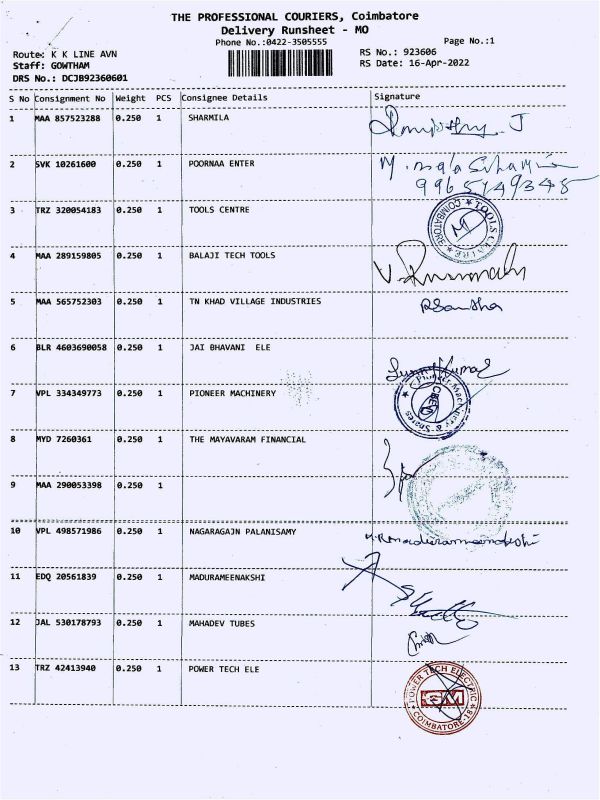 THE PROFESSIONAL COURIERS, Coimbatore
Delivery Runsheet - MO
Phone No.:0422-3505555
Page No.:1
Route: K K LINE AVN
RS No.: 923606
Staff: GOWTHAM
RS Date: 16-Apr-2022
DRS No.: DCJB92360601
S No Consignment No Weight PCS Consignee Details Signature
1 MAA 857523288 0.250 1 SHARMILA
2 SVK 10261600 0.250 1 POORNAA ENTER
9965749348
3 TRZ 320054183 0.250 1 TOOLS CENTRE
COIMBATORE TOOLS CENTRE
4 MAA 289159805 0.250 1 BALAJI TECH TOOLS
5 MAA 565752303 0.250 1 TN KHAD VILLAGE INDUSTRIES
6 BLR 4603690058 0.250 1 JAI BHAVANI ELE
7 VPL 334349773 0.250 1 PIONEER MACHINERY
Pioneer Machinery & Spares
8 MYD 7260361 0.250 1 THE MAYAVARAM FINANCIAL
9 MAA 290053398 0.250 1
10 VPL 498571986 0.250 1 NAGARAGAJN PALANISAMY
11 EDQ 20561839 0.250 1 MADURAMEENAKSHI
12 JAL 530178793 0.250 1 MAHADEV TUBES
13 TRZ 42413940 0.250 1 POWER TECH ELE
POWER TECH ELECTRIC
COIMBATORE-18